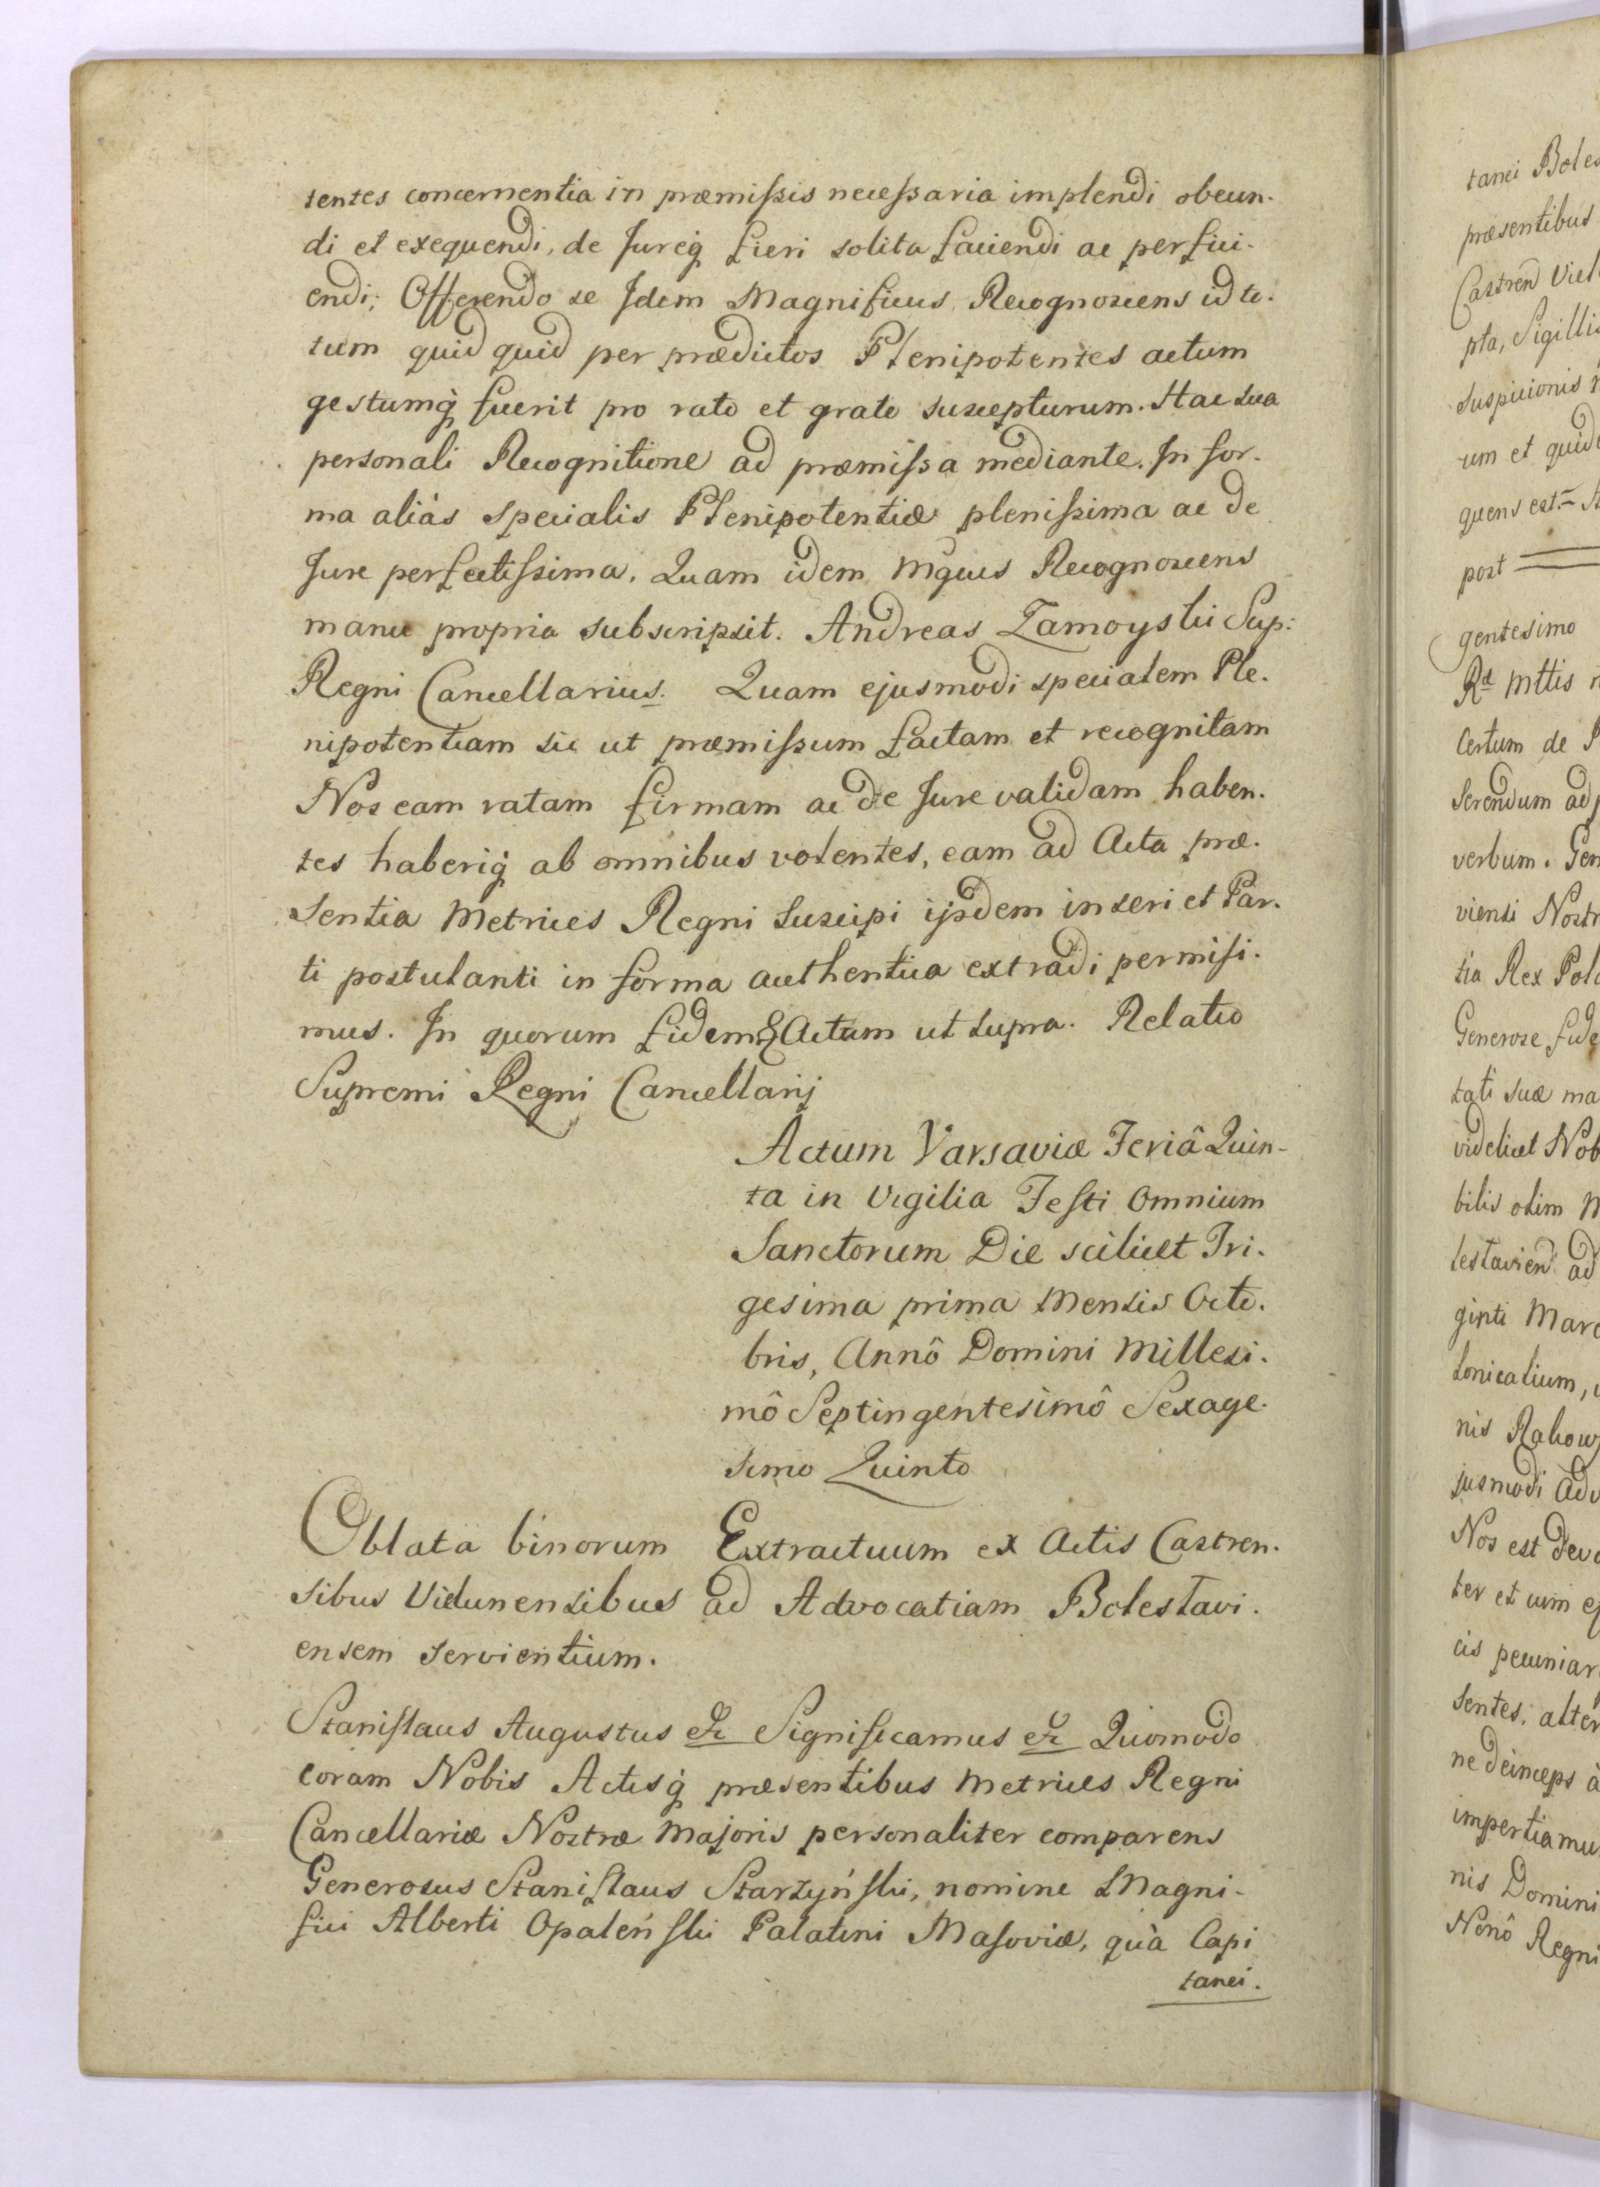 tentes concernentia in præmissis necessaria implendi obeun-
di et exequendi, de Jureq́ fieri solita faciendi ac perfici-
endi; Offerendo se Idem Magnificus Recognoscens id to-
tum quid quid per prædictos Plenipotentes actum
gestumq́ fuerit pro rato et grato suscepturum. Hac sua
personali Recognitione ad præmissa mediante. In for-
ma aliàs specialis Plenipotentiæ plenissima ac de
Jure perfectissima. Quam idem Mgcus Recognoscens
manu propria subscripsit. Andreas Zamoyski Sup:
Regni Cancellarius. Quam ejusmodi specialem Ple-
nipotentiam sic ut præmissum factam et recognitam
Nos eam ratam firmam ac de Jure validam haben-
tes haberiq́ ab omnibus volentes, eam ad Acta præ-
sentia Metrices Regni suscipi ijsdem inseri et Par-
ti postulanti in forma authentica extradi permisi-
mus. In quorum fidem & Actum ut supra. Relatio
Supremi Regni Cancellarij
Actum Varsaviæ Feriâ Quin-
ta in Vigilia Festi Omnium
Sanctorum Die scilicet Tri-
gesima prima Mensis Octo-
bris, Annô Domini Millesi-
mô Septingentesimô Sexage-
simo Quinto
Oblata binorum Extractuum ex Actis Castren-
sibus Vielunensibus ad Advocatiam Boleslavi-
ensem servientium.
Stanislaus Augustus etc Significamus etc Quomodo
coram Nobis Actisq́ præsentibus Metrices Regni
Cancellariæ Nostræ Majoris personaliter comparens
Generosus Stanislaus Starzyński, nomine Magni-
fici Alberti Opaleński Palatini Masoviæ, quà Capi
tanei.
tanei
præsentibus
Castren
pta,
suspicionis
um et
quens est.
post
gentesimo
Rd Mttis
Certum de
serendum
verbum.
viensi
tia Rex
Generose
tati suæ
videlicet
bilis olim
ad
ginti
nis
jusmodi
Nos est
ter et cum
cis
sentes, alter
ne deinceps à
nis Domini
Nonô Regni